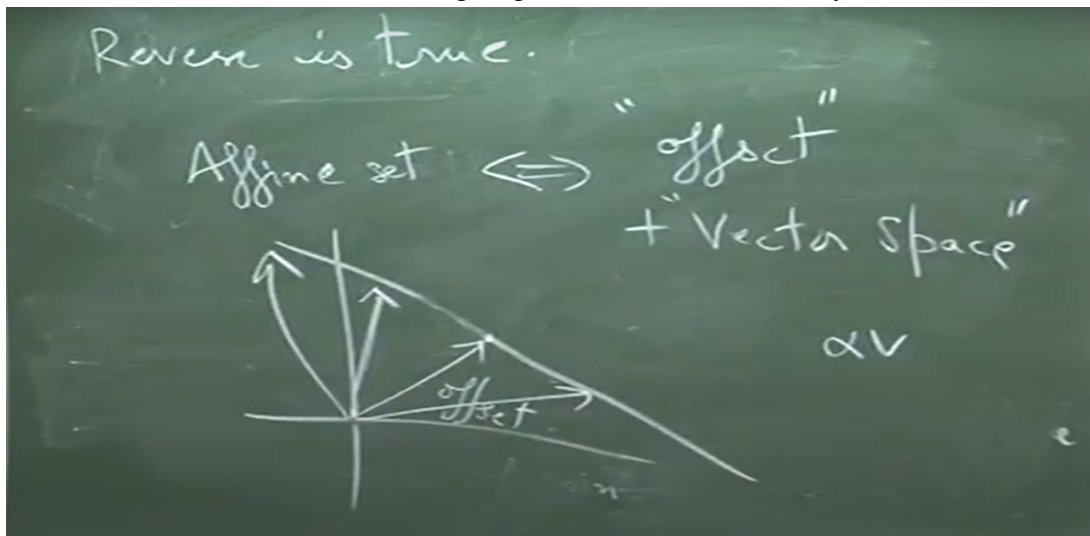 Reverse is true.
Affine set ⇔ "offset"
+ "Vector Space"
αV
offset